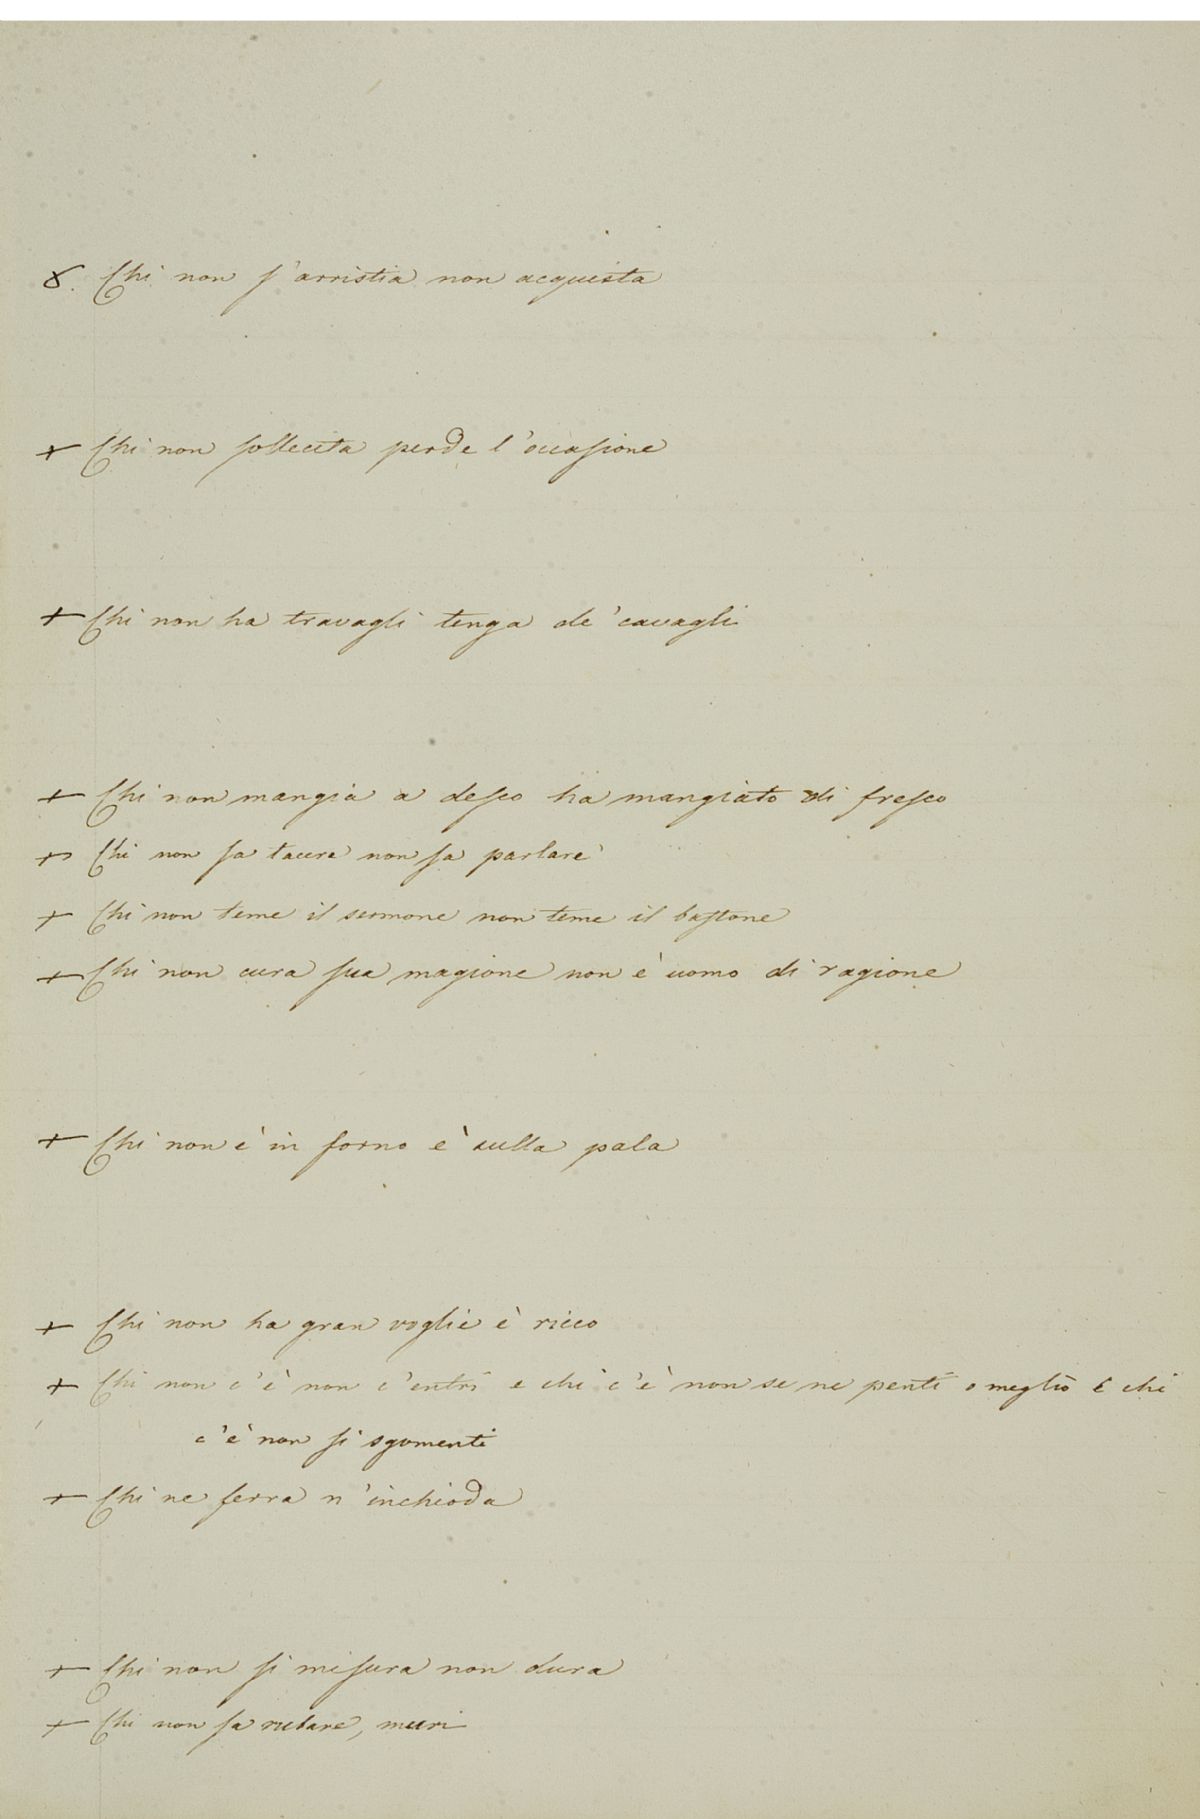 8. Chi non s'arristia non acquista
+ Chi non sollecita perde l'occasione
+ Chi non ha travagli tenga de' cavagli
+ Chi non mangia a desco ha mangiato di fresco
+ Chi non sa tacere non sa parlare
+ Chi non teme il sermone non teme il bastone
+ Chi non cura sua magione non è uomo di ragione
+ Chi non è in forno è sulla pala
+ Chi non ha gran voglie è ricco
+ Chi non c'è non c'entri e chi c'è non se ne penti o meglio è chi
c'è non si sgomenti
+ Chi ne ferra n'inchioda
+ Chi non si misura non dura
+ Chi non sa rubare, muri